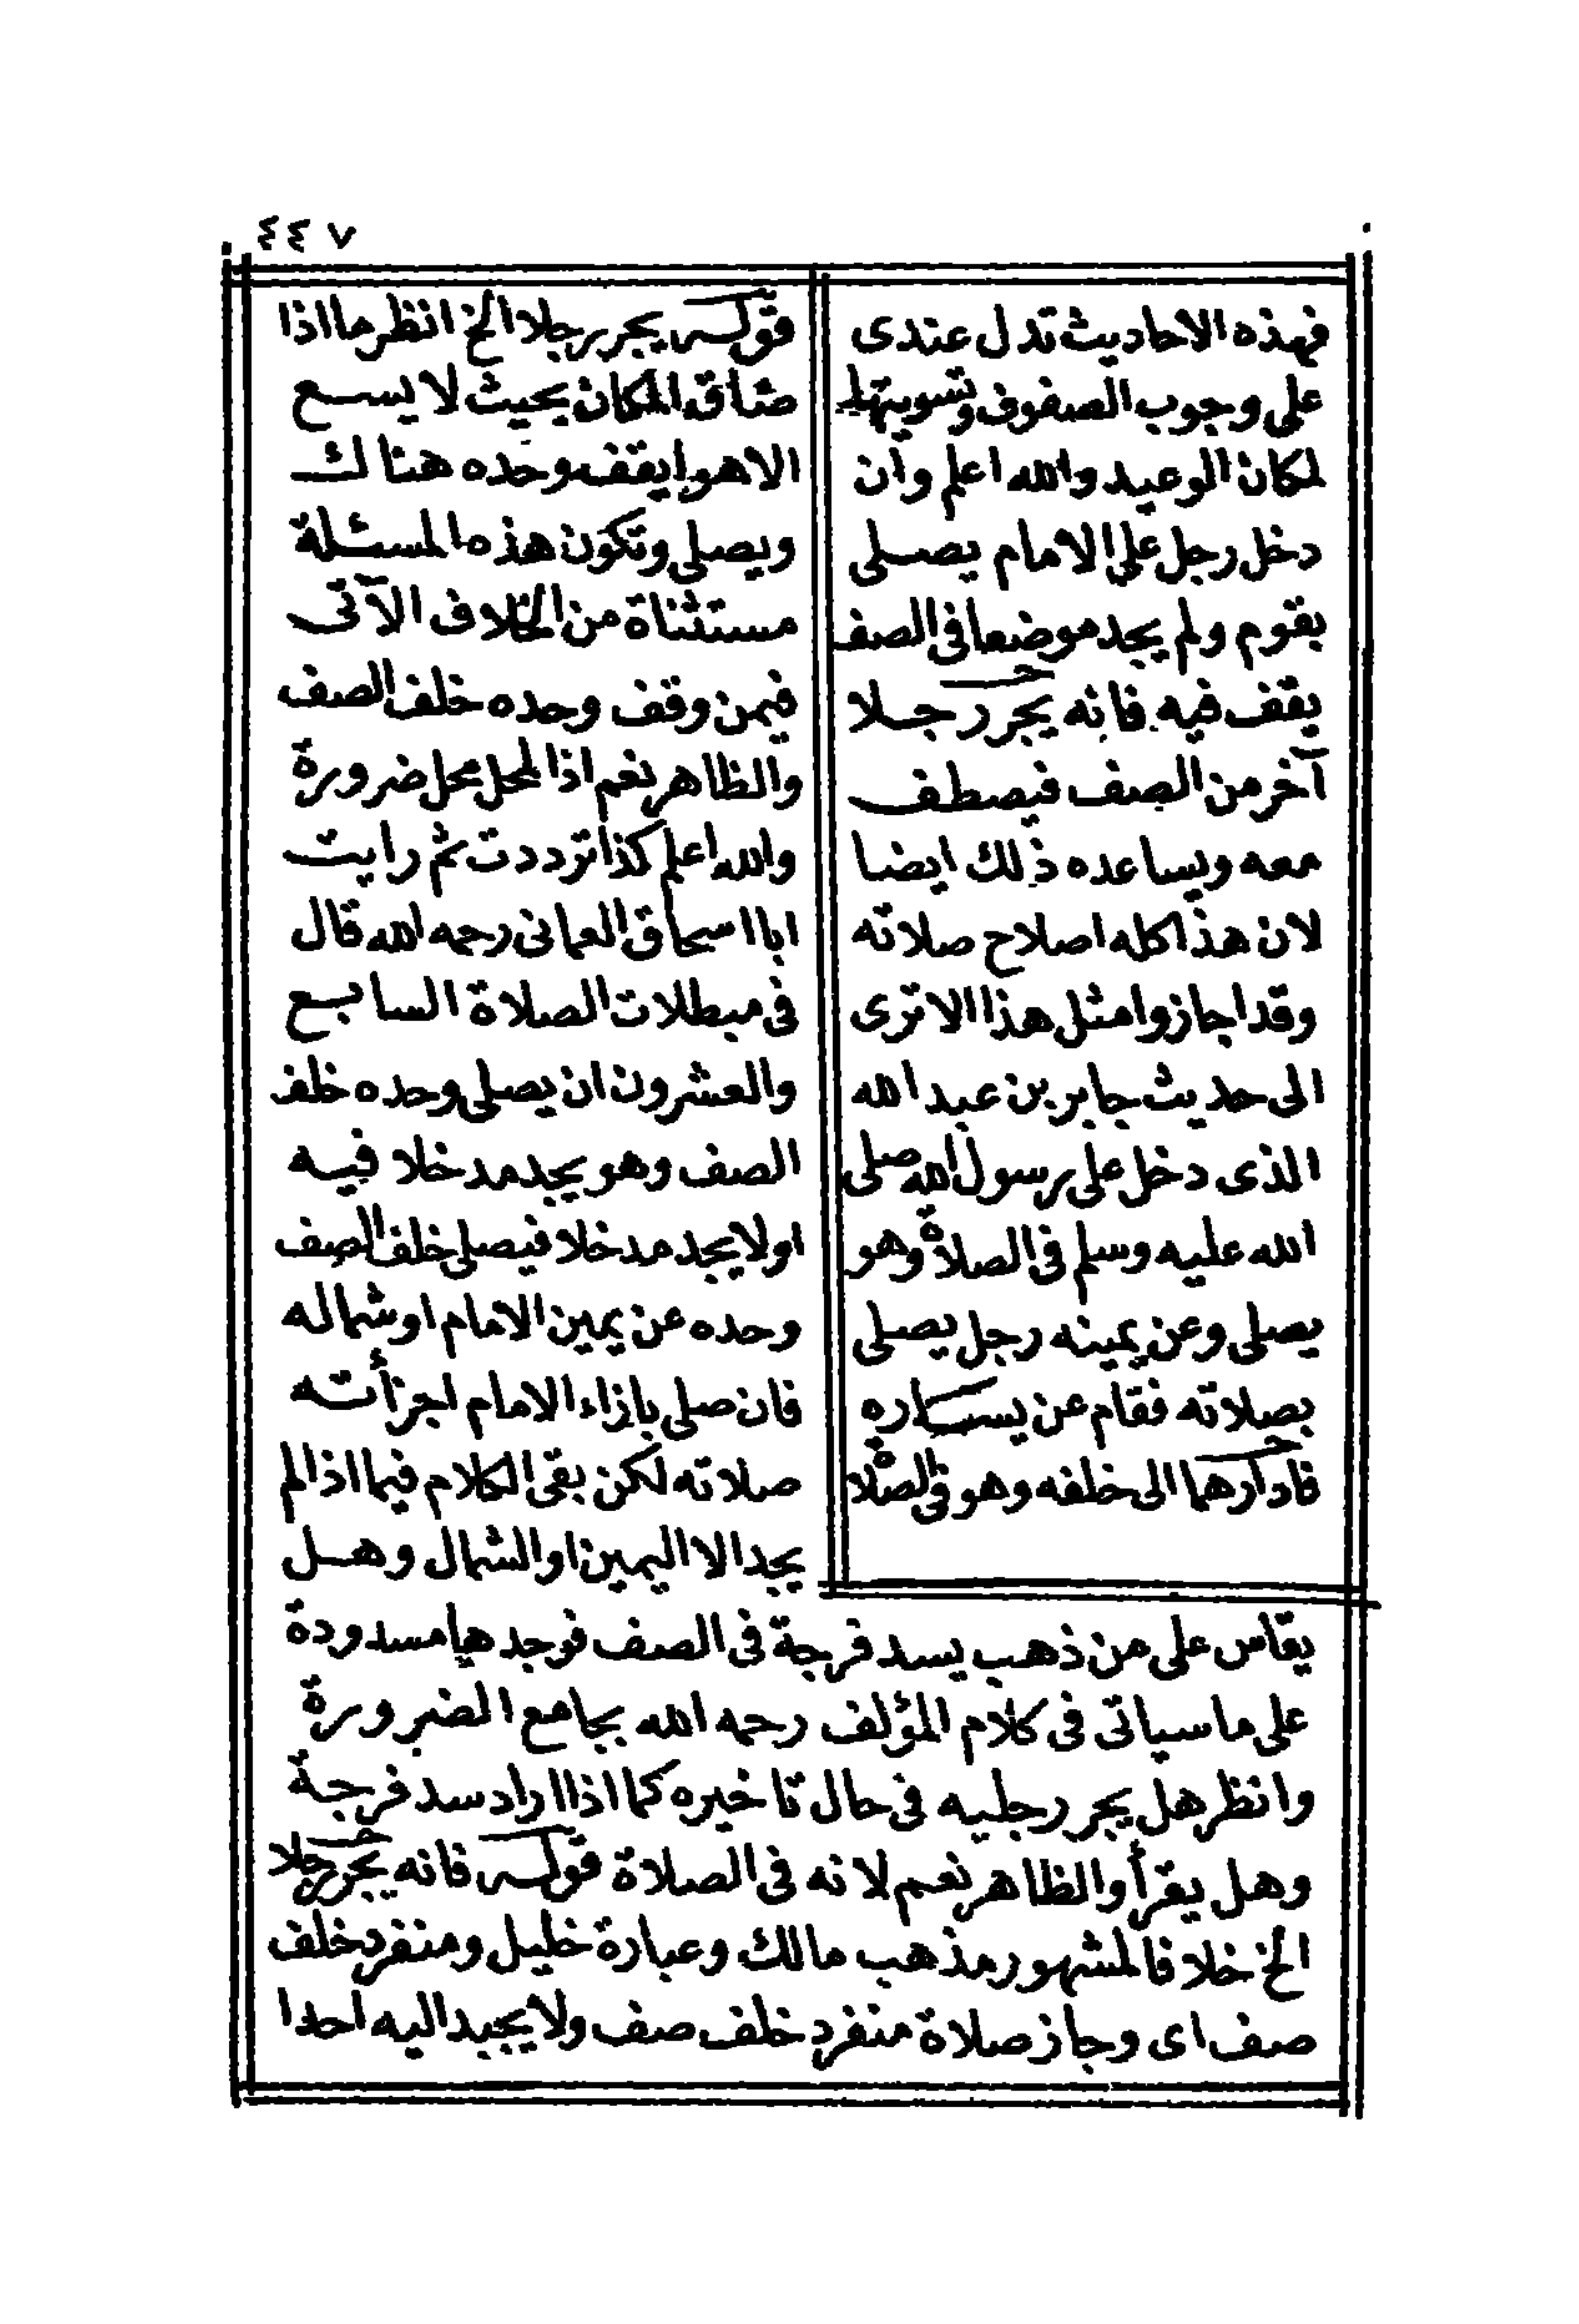 ٤٤٧
فهذه الاحاديث تدل عندى
على وجوب الصفوف وتسويتها
لمكان الوعيد والله اعلم وان
دخل رجل على الامام يصلى
بقوم ولم يجد موضعا فى الصف
يقف فيه فانه يجر رجلا
آخر من الصف فيصطف
معه ويساعده ذلك ايضا
لان هذا كله اصلاح صلاته
وقد اجازوا مثل هذا الا ترى
الى حديث جابر بن عبد الله
الذى دخل على رسول الله صلى
الله عليه وسلم فى الصلاة وهو
يصلى وعن يمينه رجل يصلى
بصلاته فقام عن يساره
فادارهما الى خلفه وهو فى الصلاة
قوله يجر رجلا الخ انظر ما اذا
ضاق المكان بحيث لا يسع
الا هو ايقف وحده هنالك
ويصلى وتكون هذه المسئلة
مستثناة من الخلاف الآتى
فيمن وقف وحده خلف الصف
والظاهر نعم اذا لمحل محل ضرورة
والله اعلم كذا ترددت ثم رايت
ابا اسحاق العمانى رحمه الله قال
فى مبطلات الصلاة السابع
والعشرون ان يصلى وحده خلف
الصف وهو يجد مدخلا فيه
او لا يجد مدخلا فيصلى خلف الصف
وحده عن يمين الامام او شماله
فان صلى بازاء الامام اجزأته
صلاته لكن بقى الكلام فيما اذا لم
يجد الا اليمين او الشمال وهل
يقاس على من ذهب يسد فرجة فى الصف فوجدها مسدودة
على ما سياتى فى كلام المؤلف رحمه الله بجامع الضرورة
وانظر هل يجر رجليه فى حال تاخيره كما اذا اراد سد فرجة
وهل يقرأ والظاهر نعم لانه فى الصلاة قوله فانه يجر رجلا
الخ خلافا لمشهور مذهب مالك وعبارة خليل ومنفرد خلف
صف اى وجاز صلاة منفرد خلف صف ولا يجبد اليه احدا